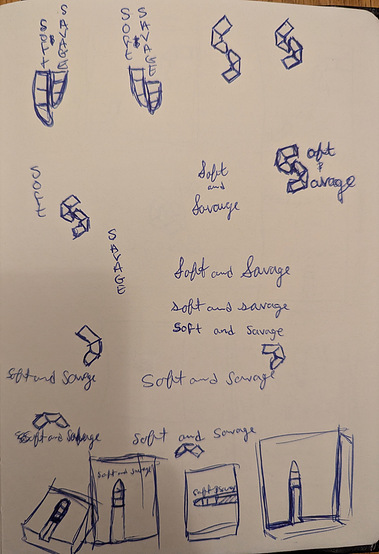 SOFT
&
SAVAGE
SOFT
&
SAVAGE
Soft
and
Savauge
Soft
&
Savage
SOFT
SAVAGE
Soft and Savage
Soft and Savage
Soft and Savage
Soft and Savage
Soft and Savage
Soft and Savage
Soft and Savage
Soft and Savage